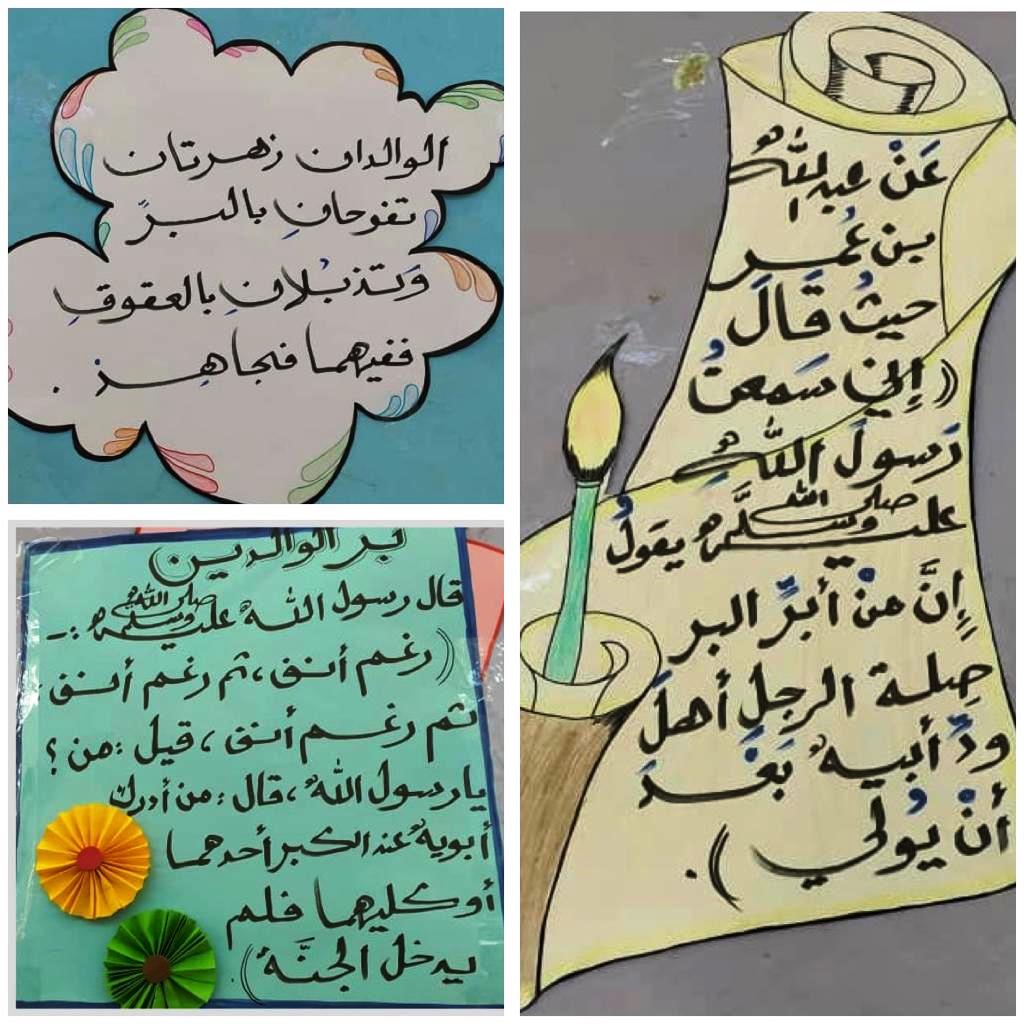 الوالدان زهرتان
تفوحانِ بالبرِّ
وَتذبُلانِ بالعقوقِ
ففيهما فجاهِـذ .
بر الوالدين
قال رسول الله صلى الله عليه وسلم :-
((رغم أنف ، ثم رغم أنف
ثم رغم أنف ، قيل : من ؟
يا رسول الله ، قال : من أدرك
أبويه عند الكبر أحدهما
أو كليهما فلم
يدخل الجنَّة)).
عَنْ عبد الله
بن عُمر
حيثُ قَالَ
((إني سَمعتُ
رَسولَ اللهِ
صلى الله عليه وسلَّم يقولُ
إِنَّ منْ أبرِّ البر
صِلة الرجلِ أهلَ
ودِّ أبيه بَعْدَ
أنْ يُولي)).